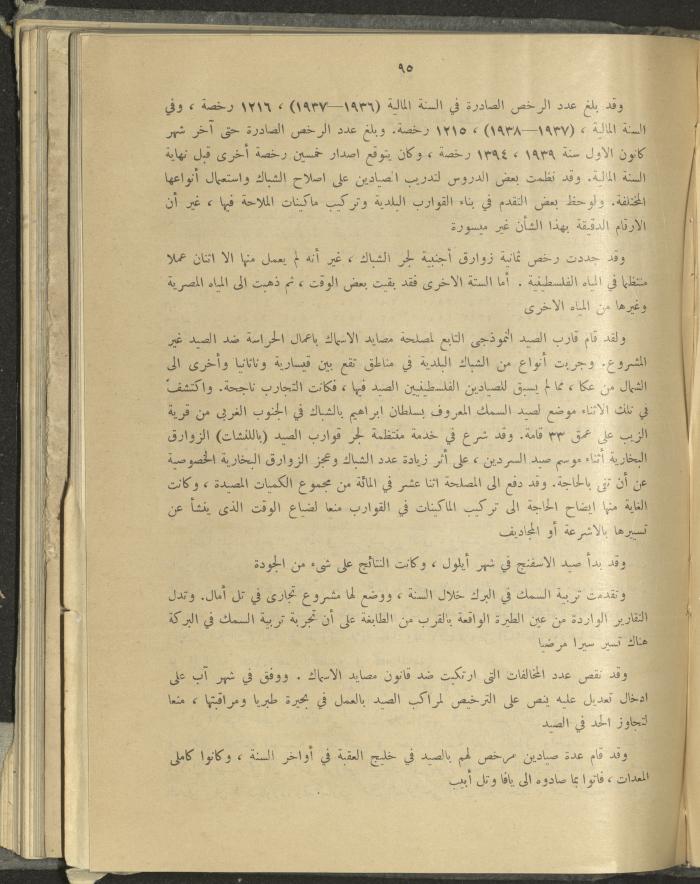 ٩٥
وقد بلغ عدد الرخص الصادرة في السنة المالية (١٩٣٦—١٩٣٧) ، ١٢١٦ رخصة ، وفي
السنة المالية ، (١٩٣٧—١٩٣٨) ، ١٢١٥ رخصة. وبلغ عدد الرخص الصادرة حتى آخر شهر
كانون الاول سنة ١٩٣٩ ، ١٣٩٤ رخصة ، وكان يتوقع اصدار خمسين رخصة أخرى قبل نهاية
السنة المالية. وقد نظمت بعض الدروس لتدريب الصيادين على اصلاح الشباك واستعمال أنواعها
المختلفة. ولوحظ بعض التقدم في بناء القوارب البلدية وتركيب ماكينات الملاحة فيها ، غير أن
الارقام الدقيقة بهذا الشأن غير ميسورة
وقد جددت رخص ثمانية زوارق أجنبية لجر الشباك ، غير أنه لم يعمل منها الا اثنان عملا
منتظما في المياه الفلسطينية . أما الستة الاخرى فقد بقيت بعض الوقت ، ثم ذهبت الى المياه المصرية
وغيرها من المياه الاخرى
ولقد قام قارب الصيد النموذجى التابع لمصلحة مصايد الاسماك باعمال الحراسة ضد الصيد غير
المشروع. وجربت أنواع من الشباك البلدية في مناطق تقع بين قيسارية وناتانيا وأخرى الى
الشمال من عكا ، مما لم يسبق للصيادين الفلسطينيين الصيد فيها ، فكانت التجارب ناجحة. واكتشف
في تلك الاثناء موضع لصيد السمك المعروف بسلطان ابراهيم بالشباك في الجنوب الغربى من قرية
الزيب على عمق ٣٣ قامة. وقد شرع في خدمة منتظمة لجر قوارب الصيد (باللنشات) الزوارق
البخارية أثناء موسم صيد السردين ، على أثر زيادة عدد الشباك وعجز الزوارق البخارية الخصوصية
عن أن تفى بالحاجة. وقد دفع الى المصلحة اثنا عشر في المائة من مجموع الكميات المصيدة ، وكانت
الغاية منها ايضاح الحاجة الى تركيب الماكينات في القوارب منعا لضياع الوقت الذى ينشأ عن
تسييرها بالاشرعة أو المجاديف
وقد بدأ صيد الاسفنج في شهر أيلول ، وكانت النتائج على شىء من الجودة
وتقدمت تربية السمك في البرك خلال السنة ، ووضع لها مشروع تجارى في تل أمال. وتدل
التقارير الواردة من عين الطبرة الواقعة بالقرب من الطابغة على أن تجربة تربية السمك في البركة
هناك تسير سيرا مرضيا
وقد نقص عدد المخالفات التى ارتكبت ضد قانون مصايد الاسماك . ووفق في شهر آب على
ادخال تعديل عليه ينص على الترخيص لمراكب الصيد بالعمل في بحيرة طبريا ومراقبتها ، منعا
لتجاوز الحد في الصيد
وقد قام عدة صيادين مرخص لهم بالصيد في خليج العقبة في أواخر السنة ، وكانوا كاملى
المعدات ، فاتوا بما صادوه الى يافا وتل أبيب